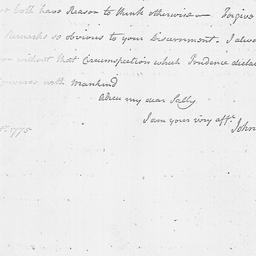 both have Reason to think otherwise — Forgive
Remarks so obvious to your Discernment. I alwa
without that Circumspection which Prudence dicta
with Mankind
Adieu my dear Sally
I am your very aff.
John
1775